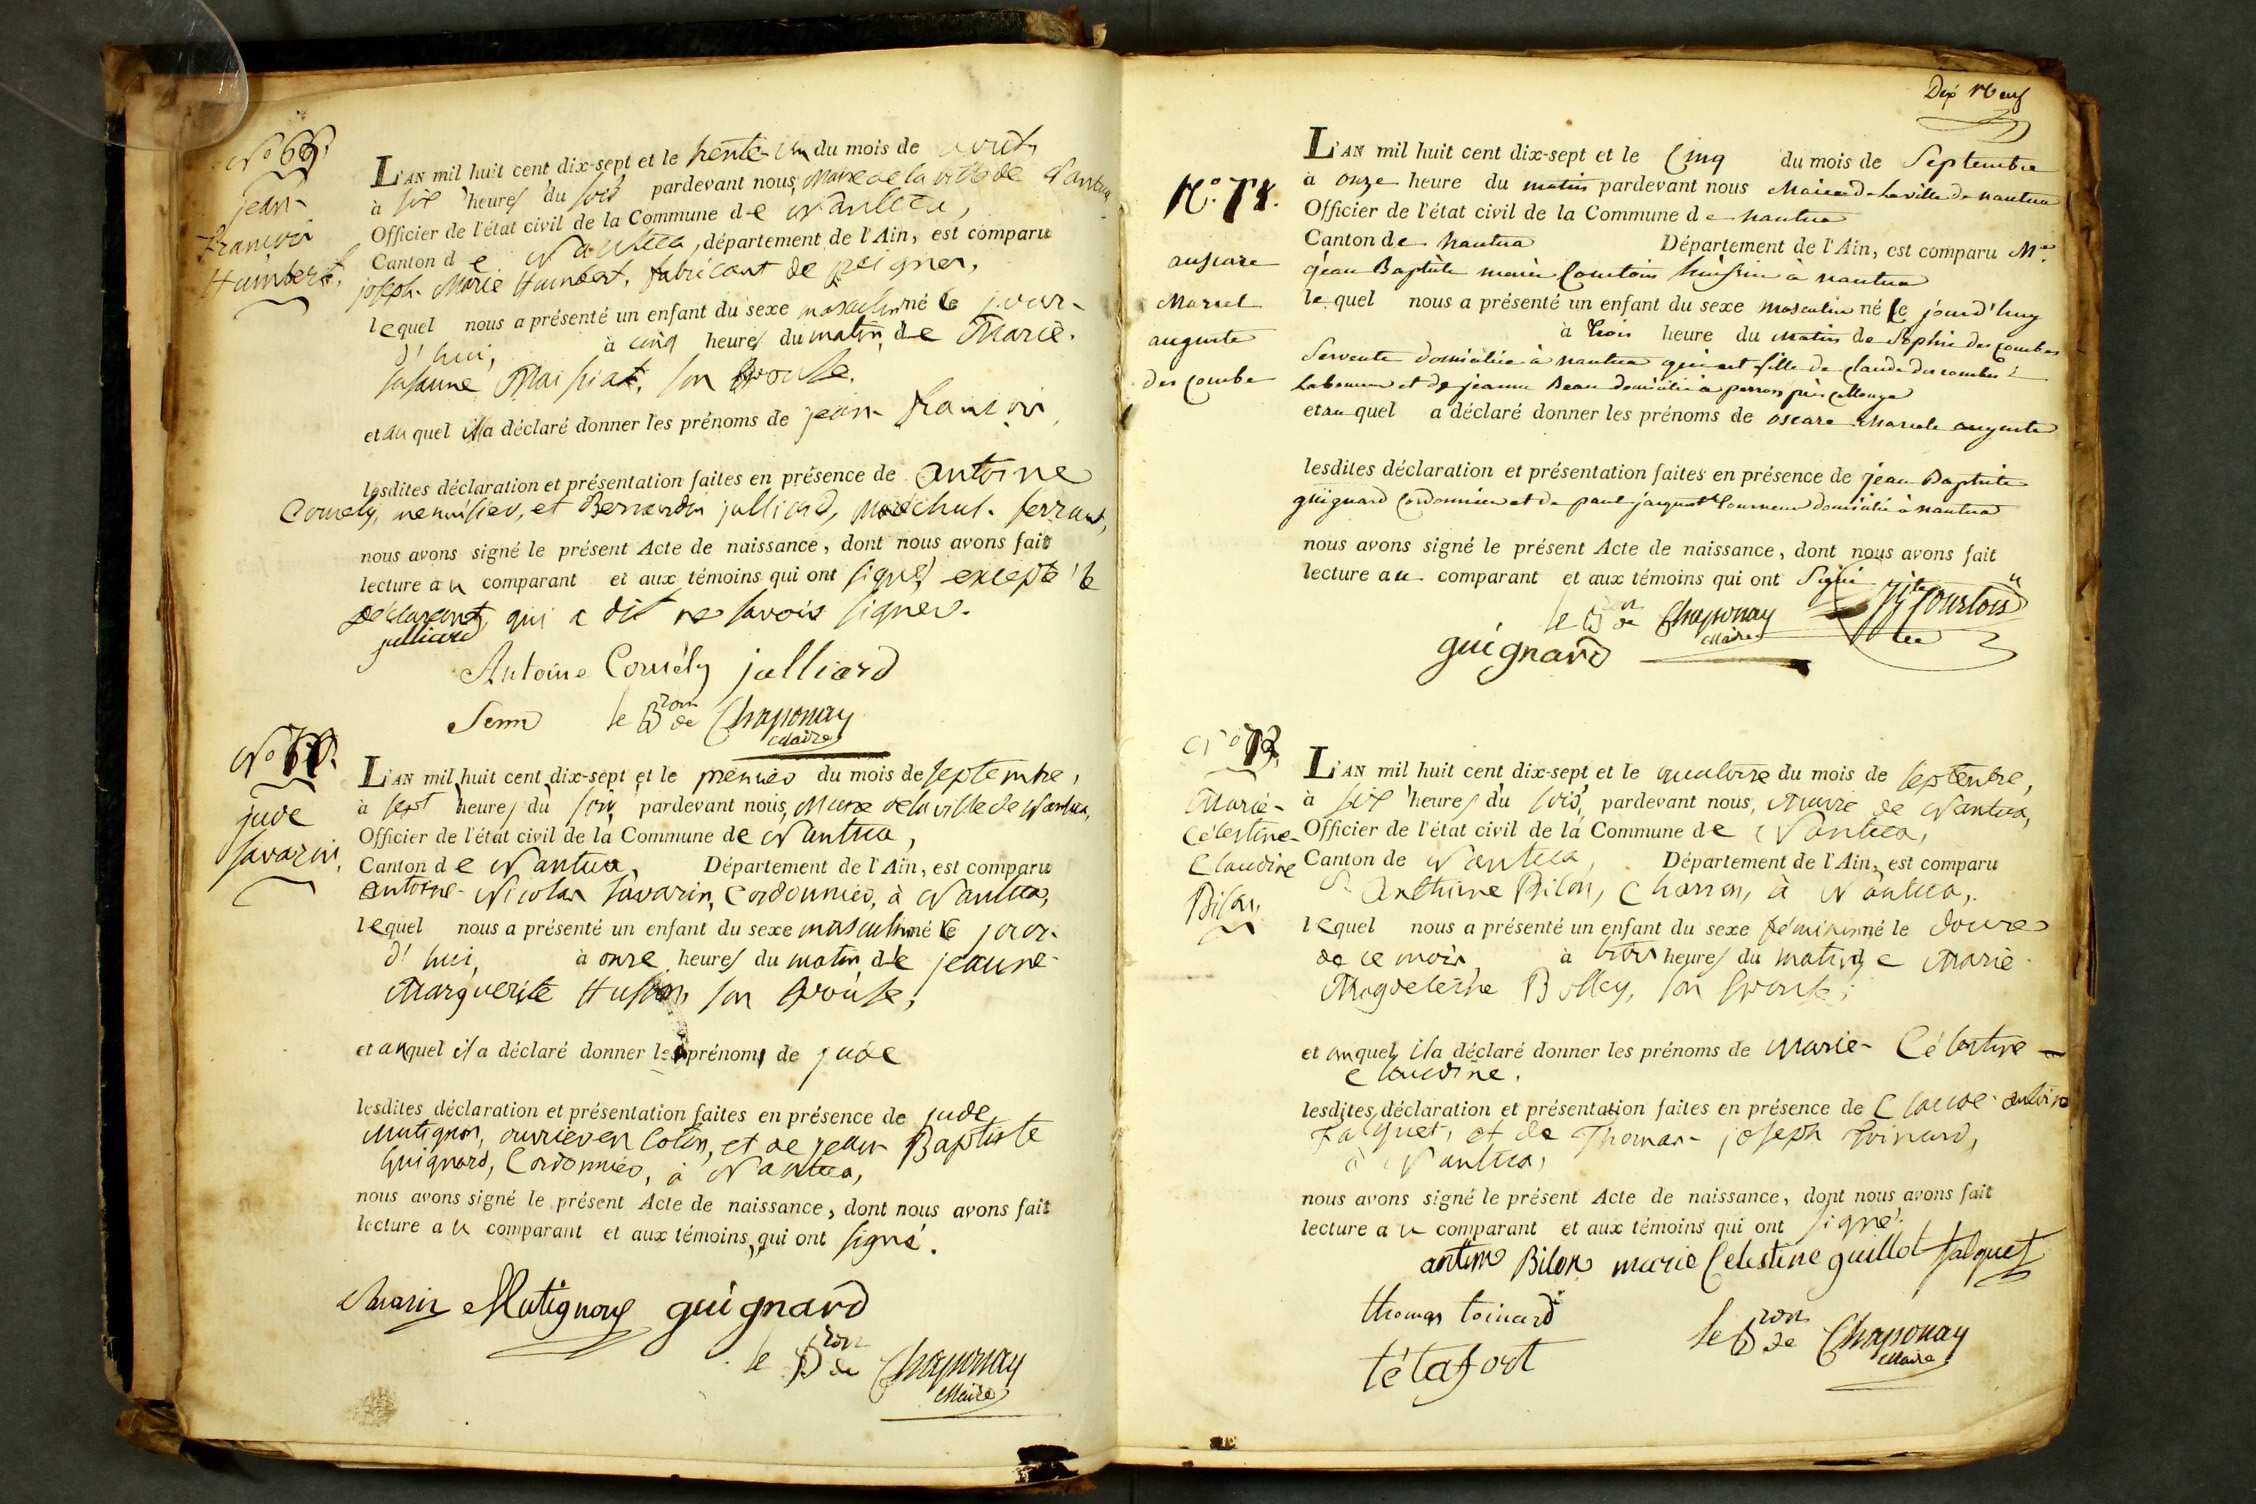 No 69.
jean-
françois
Humbert.
L'AN mil huit cent dix-sept et le trente-un du mois de août,
à six heures du soir pardevant nous, Maire de la ville de Nantua,
Officier de l'état civil de la Commune de Nantua,
Canton de Nantua, département de l'Ain, est comparu
joseph-Marie Humbert, fabricant de peignes,
lequel nous a présenté un enfant du sexe masculin né le jour-
d'hui, à cinq heures du matin, de Marie-
susanne Maissiat, son épouse.
et auquel il a déclaré donner les prénoms de jean-françois,
lesdites déclaration et présentation faites en présence de antoine
Comély, menuisier, et Bernardin julliard, maréchal-ferrant,
nous avons signé le présent Acte de naissance, dont nous avons fait
lecture au comparant et aux témoins qui ont signé, excepté le
déclarant, qui a dit ne savoir signer.
julliard
Antoine Comély julliard
le Bron de Chaponay
Maire
No
jude
savarin.
L'AN mil huit cent dix-sept et le premier du mois de septembre,
à sept heures du soir, pardevant nous, Maire de la ville de Nantua,
Officier de l'état civil de la Commune de Nantua,
Canton de Nantua, Département de l'Ain, est comparu
antoine-Nicolas savarin, cordonnier, à Nantua,
lequel nous a présenté un enfant du sexe masculin né le jour-
d'hui, à onze heures du matin, de jeanne-
Marguerite Husson, son épouse,
et auquel il a déclaré donner les prénoms de jude
lesdites déclaration et présentation faites en présence de jude
Mutignon, ouvrier en coton, et de jean Baptiste
Guignard, Cordonnier, à Nantua,
nous avons signé le présent Acte de naissance, dont nous avons fait
lecture au comparant et aux témoins, qui ont signé.
Savarin Mutignon guignard
le Bron de Chaponay
Maire
Dix Neuf
No. 71.
auscare
Marcel
auguste
des combe
L'AN mil huit cent dix-sept et le Cinq du mois de Septembre
à onze heure du matin pardevant nous Maire de La ville de nantua
Officier de l'état civil de la Commune de nantua
Canton de nantua Département de l'Ain, est comparu Me.
jean Baptiste marie Courtois huissier à nantua
lequel nous a présenté un enfant du sexe masculin né le jourd'huy
à trois heure du matin de Sophie des combes
Servente domiciliée à nantua qui est fille de claude des combes
Laboureur et de jeanne Beau domicilié à perron près Collonge
et au quel a déclaré donner les prénoms de oscare Marcele auguste
lesdites déclaration et présentation faites en présence de jean Baptiste
guignard Cordonnier et de paul jarquet tourneur domicilié à nantua
nous avons signé le présent Acte de naissance, dont nous avons fait
lecture au comparant et aux témoins qui ont Signé
le Bon de Chaponay Courtois
Maire
guignard
No 72.
Marie-
Célestine-
Claudine
Bilon,
L'AN mil huit cent dix-sept et le quatorze du mois de septembre,
à six heures du soir, pardevant nous, Maire de Nantua,
Officier de l'état civil de la Commune de Nantua,
Canton de Nantua, Département de l'Ain, est comparu
Sr. Anthime Bilon, Charron, à Nantua,
lequel nous a présenté un enfant du sexe féminin né le douze
de ce mois à trois heures du matin, de Marie-
Magdeleine Bolley, son épouse;
et auquel il a déclaré donner les prénoms de Marie-Célestine-
Claudine.
lesdites déclaration et présentation faites en présence de Claude-antoine
Falquet, et de Thomas-joseph Toinard,
à Nantua,
nous avons signé le présent Acte de naissance, dont nous avons fait
lecture au comparant et aux témoins qui ont signé.
antime Bilon marie Celestine guillot falquet
thomas toinard
le Bron de Chaponay
Maire
tétafort